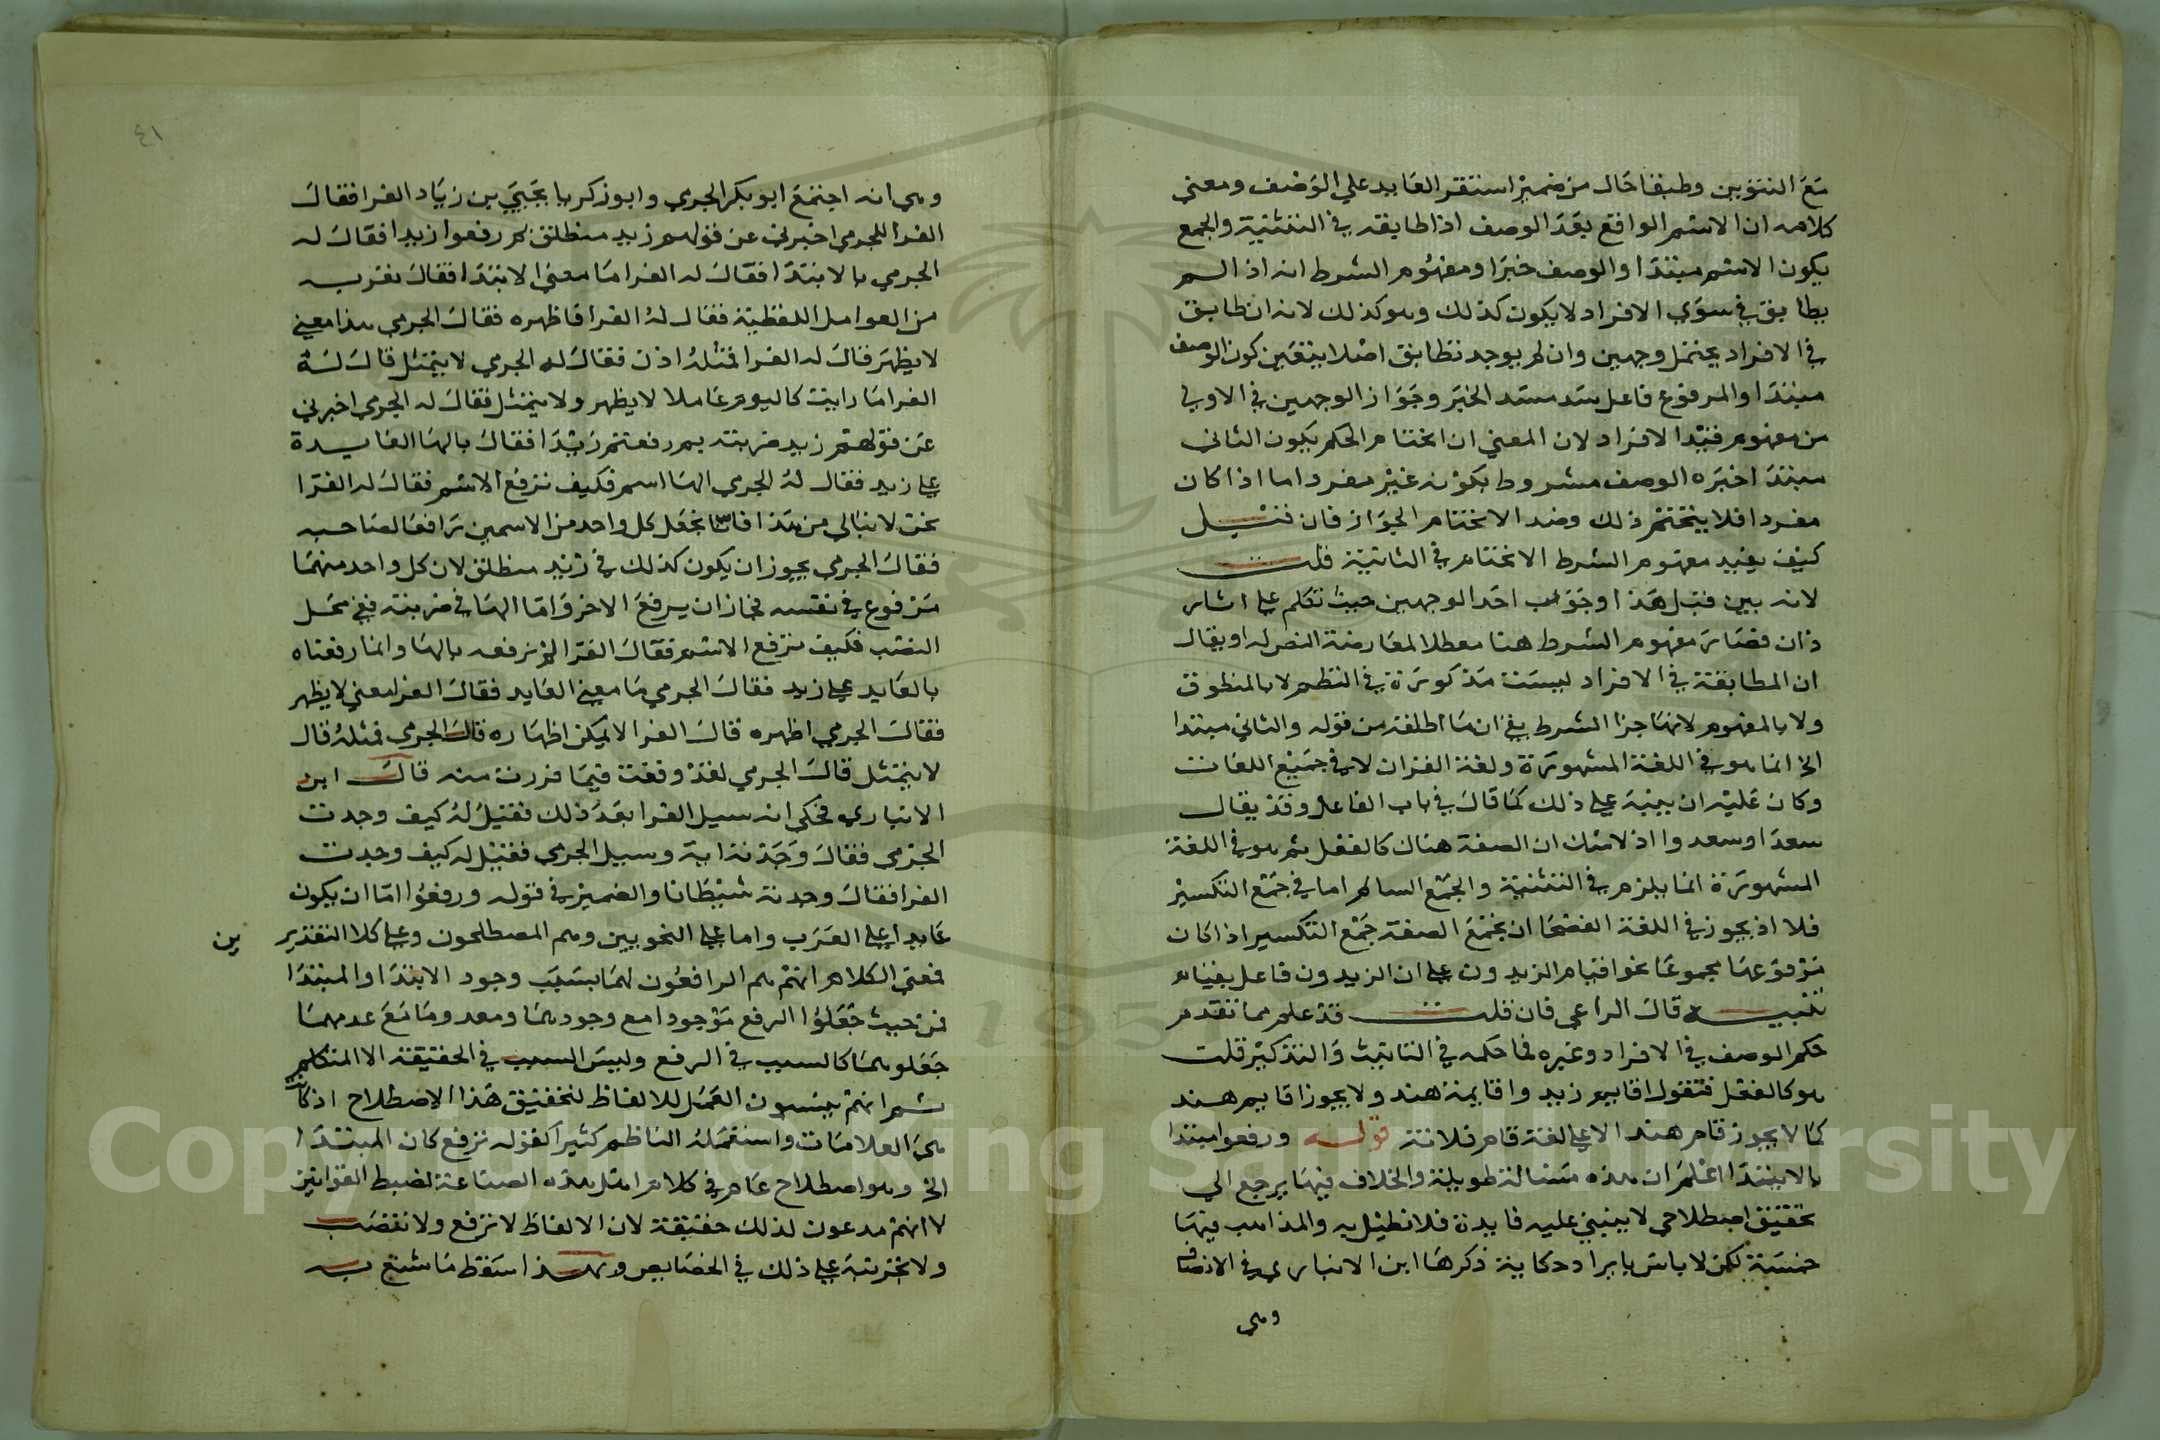 مع التنوين وطبقا حال من ضمير استقر العايد علي الوصف ومعني
كلامه ان الاسم الواقع بعد الوصف اذا طابقه في التثنية والجمع
يكون الاسم مبتدا والوصف خبرا ومفهوم الشرط انه اذا لم
يطابق في سوي الافراد لا يكون كذلك وهو كذلك لانه ان طابق
في الافراد يحتمل وجهين وان لم يوجد تطابق اصلا يتعين كون الوصف
مبتدا والمرفوع فاعل سد مسد الخبر وجواز الوجهين في الاولي
من مفهوم قيد الافراد لان المعني ان انحتام الحكم بكون الثاني
مبتدا خبره الوصف مشروط بكونه غير مفرد اما اذا كان
مفردا فلا ينحتم ذلك وضد الانحتام الجواز فان قيل
كيف يفيد مفهوم الشرط الانحتام في الثانية قلت
لانه بين قبل هذا وجوب احد الوجهين حيث تكلم علي اسار
ذان فصار مفهوم الشرط هنا معطلا لمعارضة النص له او يقال
ان المطابقة في الافراد ليست مذكورة في النظم لا بالمنطوق
ولا بالمفهوم لانها جزا الشرط بقي ان ما اطلقه من قوله والثاني مبتدا
الخ انما هو في اللغة المشهورة ولغة القران لا في جميع اللغات
وكان عليه ان ينبه علي ذلك كما قال في باب الفاعل وقد يقال
سعدا وسعدوا اذ لا شك ان الصفة هناك كالفعل ثم هو في اللغة
المشهورة انما يلزم في التثنية والجمع السالم اما في جمع التكسير
فلا اذ يجوز في اللغة الفصحا ان تجمع الصفة جمع التكسير اذا كان
مرفوعها مجموعا نحو اقيام الزيدون علي ان الزيدون فاعل بقيام
تنبيه قال الراعي فان قلت قد علم مما تقدم
حكم الوصف في الافراد وغيره فما حكمه في التانيث والتذكير قلت
هو كالفعل فتقول اقايم زيد واقايمة هند ولا يجوز اقايم هند
كما لا يجوز قام هند الا علي لغة قام فلانة قوله ورفعوا مبتدا
بالابتدا اعلم ان هذه مسالة طويلة والخلاف فيها يرجع الي
تحقيق اصطلاحي لا ينبني عليه فايدة فلا نطيل به والمذاهب فيها
خمسة لكن لا باس بايراد حكاية ذكرها ابن الانباري في الانصاف
وهي
٤١
وهي انه اجتمع ابو بكر الجرمي وابو زكريا يحيي بن زياد الفرا فقال
الفرا للجرمي اخبرني عن قولهم زيد منطلق لم رفعوا زيدا فقال له
الجرمي بالابتدا فقال له الفرا ما معني الابتدا فقال تعريه
من العوامل اللفظية فقال له الفرا فاظهره فقال الجرمي هذا معني
لا يظهر قال له الفرا فمثله اذن فقال له الجرمي لا يتمثل قال له
الفرا ما رايت كاليوم عاملا لا يظهر ولا يتمثل فقال له الجرمي اخبرني
عن قولهم زيد ضربته بم رفعتم زيدا فقال بالها العايدة
علي زيد فقال له الجرمي الها اسم فكيف ترفع الاسم فقال له الفرا
نحن لا نبالي من هذا فانا نجعل كل واحد من الاسمين رافعا لصاحبه
فقال الجرمي يجوز ان يكون كذلك في زيد منطلق لان كل واحد منهما
مرفوع في نفسه فجاز ان يرفع الاخر واما الها في ضربته ففي محل
النصب فكيف ترفع الاسم فقال الفرا لم نرفعه بالها وانما رفعناه
بالعايد علي زيد فقال الجرمي ما معني العايد فقال الفرا معني لا يظهر
فقال الجرمي اظهره قال الفرا لا يمكن اظهاره قال الجرمي فمثله قال
لا يتمثل قال الجرمي لقد وقعت فيما فررت منه قال ابن
الانباري فحكي انه سيل الفرا بعد ذلك فقيل له كيف وجدت
الجرمي فقال وجدته اية وسيل الجرمي فقيل له كيف وجدت
الفرا فقال وجدته شيطانا والضمير في قوله ورفعوا اما ان يكون
عايدا علي العرب واما علي النحويين وهم المصطلحون وعلي كلا التقدير
ين
فمعني الكلام انهم هم الرافعون لهما بسبب وجود الابتدا والمبتدا
فمن حيث جعلوا الرفع موجودا مع وجودهما ومعدوما مع عدمهما
جعلوهما كالسبب في الرفع وليس السبب في الحقيقة الا المتكلم
ثم انهم ينسبون العمل للالفاظ لتحقيق هذا الاصطلاح اذ كانت
هي العلامات واستعمله الناظم كثيرا كقوله ترفع كان المبتدا
الخ وهو اصطلاح عام في كلام اهل هذه الصناعة لضبط القوانين
لا انهم مدعون لذلك حقيقة لان الالفاظ لا ترفع ولا تنصب
ولا تجر نبه علي ذلك في الخصايص وبهذا اسقط ما شنع به